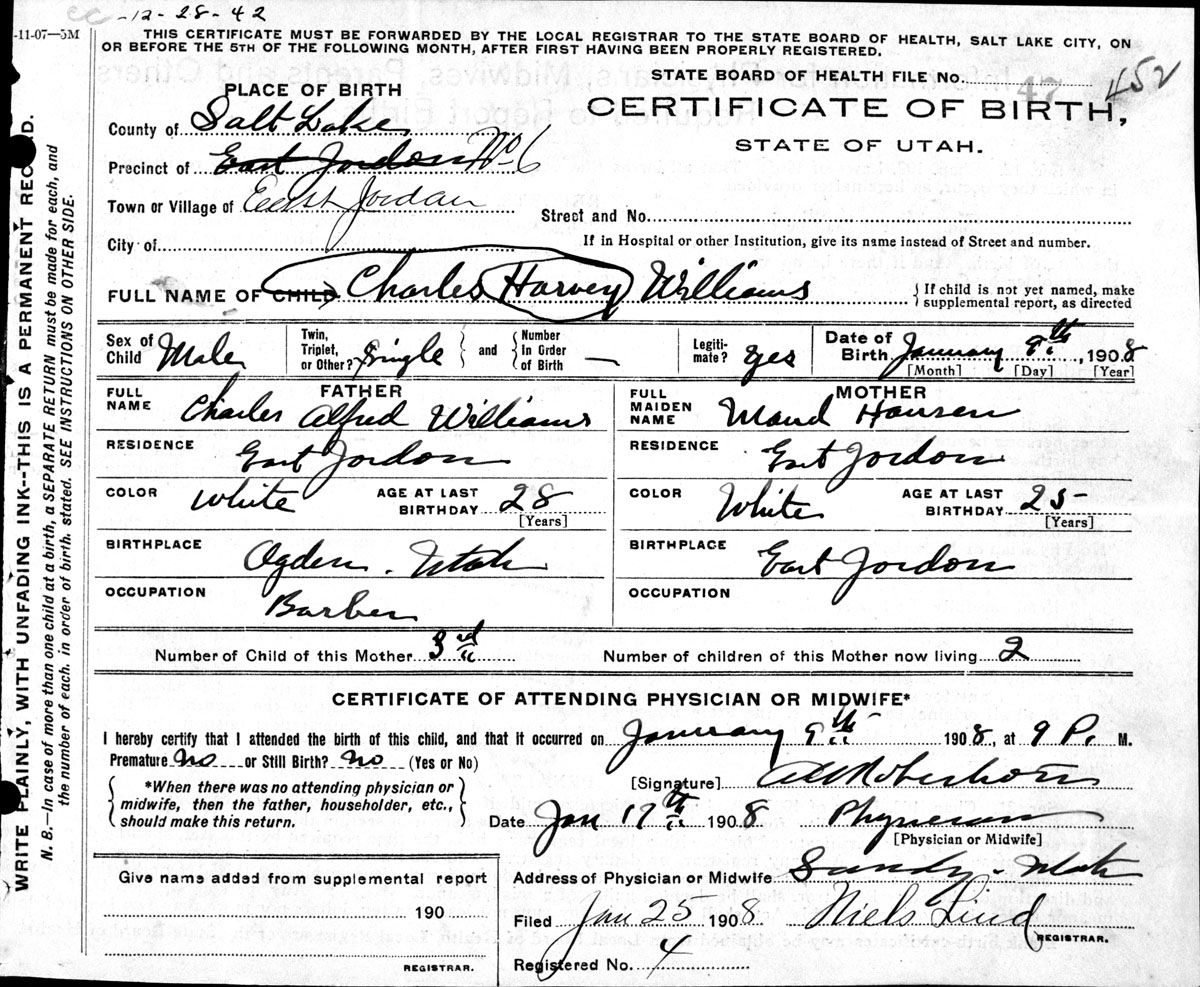 cc -12-28-42
-11-07-5M
THIS CERTIFICATE MUST BE FORWARDED BY THE LOCAL REGISTRAR TO THE STATE BOARD OF HEALTH, SALT LAKE CITY, ON
OR BEFORE THE 5TH OF THE FOLLOWING MONTH, AFTER FIRST HAVING BEEN PROPERLY REGISTERED.
STATE BOARD OF HEALTH FILE No. 47 452
PLACE OF BIRTH
CERTIFICATE OF BIRTH,
STATE OF UTAH.
County of Salt Lake
Precinct of East Jordon No. 6
Town or Village of East Jordan
Street and No.
City of
If in Hospital or other Institution, give its name instead of Street and number.
FULL NAME OF CHILD Charles Harvey Williams
{ If child is not yet named, make
supplemental report, as directed
Sex of Child Male
Twin, Triplet, or Other? Single } and { Number in Order of Birth —
Legiti-mate? yes
Date of Birth January 9th, 1908
[Month] [Day] [Year]
FATHER
FULL NAME Charles Alfred Williams
RESIDENCE East Jordon
COLOR White AGE AT LAST BIRTHDAY 28
[Years]
BIRTHPLACE Ogden. Utah
OCCUPATION Barber
MOTHER
FULL MAIDEN NAME Maud Hansen
RESIDENCE East Jordon
COLOR White AGE AT LAST BIRTHDAY 25
[Years]
BIRTHPLACE East Jordon
OCCUPATION
Number of Child of this Mother 3rd
Number of children of this Mother now living 2
CERTIFICATE OF ATTENDING PHYSICIAN OR MIDWIFE*
I hereby certify that I attended the birth of this child, and that it occurred on January 9th 1908, at 9 P. M.
Premature No or Still Birth? No (Yes or No)
{ *When there was no attending physician or
midwife, then the father, householder, etc.,
should make this return. }
[Signature]
Date Jan 17th 1908 Physician
[Physician or Midwife]
Address of Physician or Midwife Sandy. Utah
Give name added from supplemental report
190
REGISTRAR.
Filed Jan 25 1908 Niels Lind
REGISTRAR.
Registered No. 4
WRITE PLAINLY, WITH UNFADING INK--THIS IS A PERMANENT RECORD.
N. B.—In case of more than one child at a birth, a SEPARATE RETURN must be made for each, and
the number of each, in order of birth, stated. SEE INSTRUCTIONS ON OTHER SIDE.